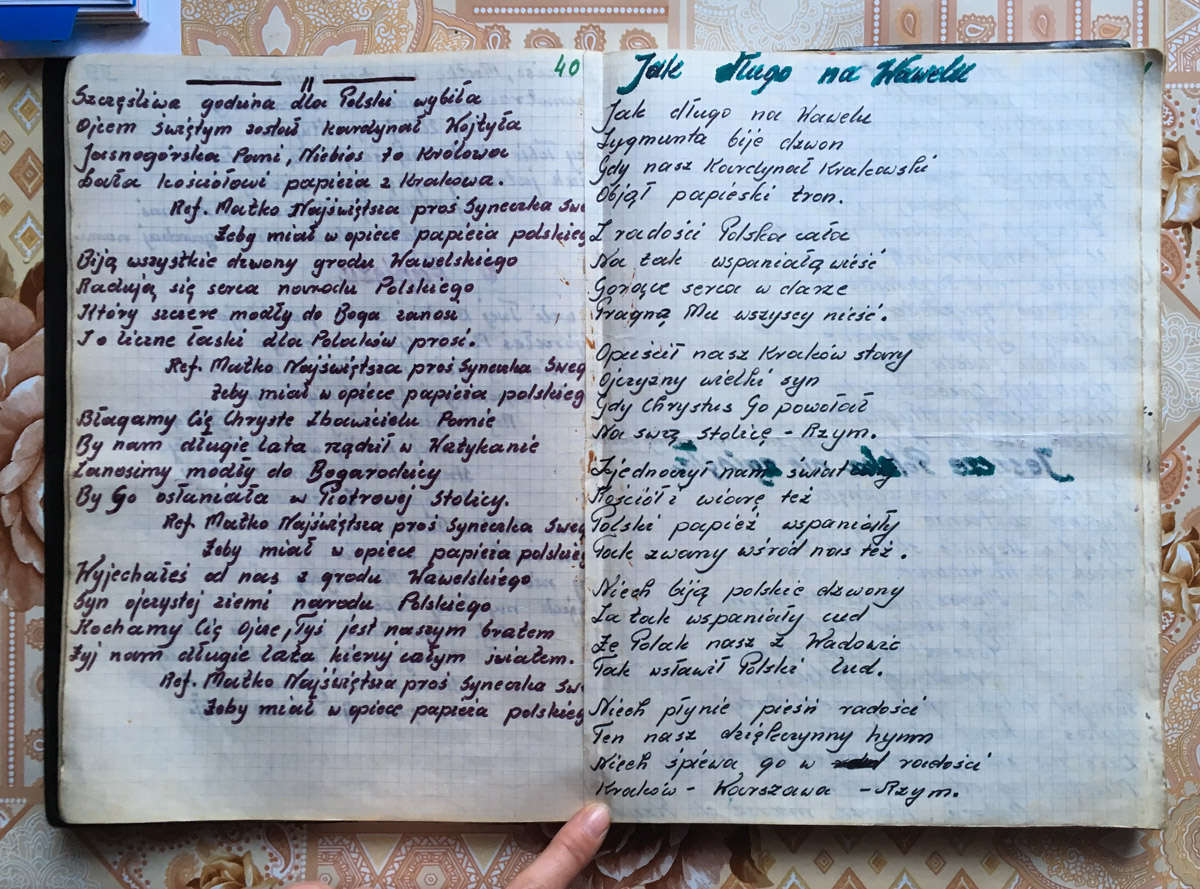 40
— 11 —
Szczęśliwa godzina dla Polski wybiła
Ojcem świętym został kardynał Wojtyła
Jasnogórska Pani, Niebios to Królowa
Dała kościołowi papieża z Krakowa.
Ref. Matko Najświętsza proś Syneczka Swe
Żeby miał w opiece papieża polskieg
Biją wszystkie dzwony grodu Wawelskiego
Radują się serca narodu Polskiego
Który szczere modły do Boga zanosi
I o liczne łaski dla Polaków prosi.
Ref. Matko Najświętsza proś Syneczka Sweg
Żeby miał w opiece papieża polskieg
Błagamy Cię Chryste Zbawicielu Panie
By nam długie lata rządził w Watykanie
Zanosimy modły do Bogarodzicy
By Go osłaniała w Piotrowej Stolicy.
Ref. Matko Najświętsza proś Syneczka Sweg
Żeby miał w opiece papieża polskieg
Wyjechałeś od nas z grodu Wawelskiego
Syn ojczystej ziemi narodu Polskiego
Kochamy Cię Ojcze, Tyś jest naszym bratem
Żyj nam długie lata kieruj całym światem.
Ref. Matko Najświętsza proś Syneczka Swe
Żeby miał w opiece papieża polskieg
Jak długo na Wawelu
Jak długo na Wawelu
Zygmunta bije dzwon
Gdy nasz Kardynał Krakowski
Objął papieski tron.
Z radości Polska cała
Na tak wspaniałą wieść
Gorące serca w darze
Pragną Mu wszyscy nieść.
Opuścił nasz Kraków stary
Ojczyzny wielki syn
Gdy Chrystus Go powołał
Na swą stolicę - Rzym.
Zjednoczył nam świat cały
Kościół i wiarę też
Polski papież wspaniały
Tak zwany wśród nas też.
Niech biją polskie dzwony
Za tak wspaniały cud
Że Polak nasz z Wadowic
Tak wsławił Polski lud.
Niech płynie pieśń radości
Ten nasz dziękczynny hymn
Niech śpiewa go w radości
Kraków - Warszawa - Rzym.